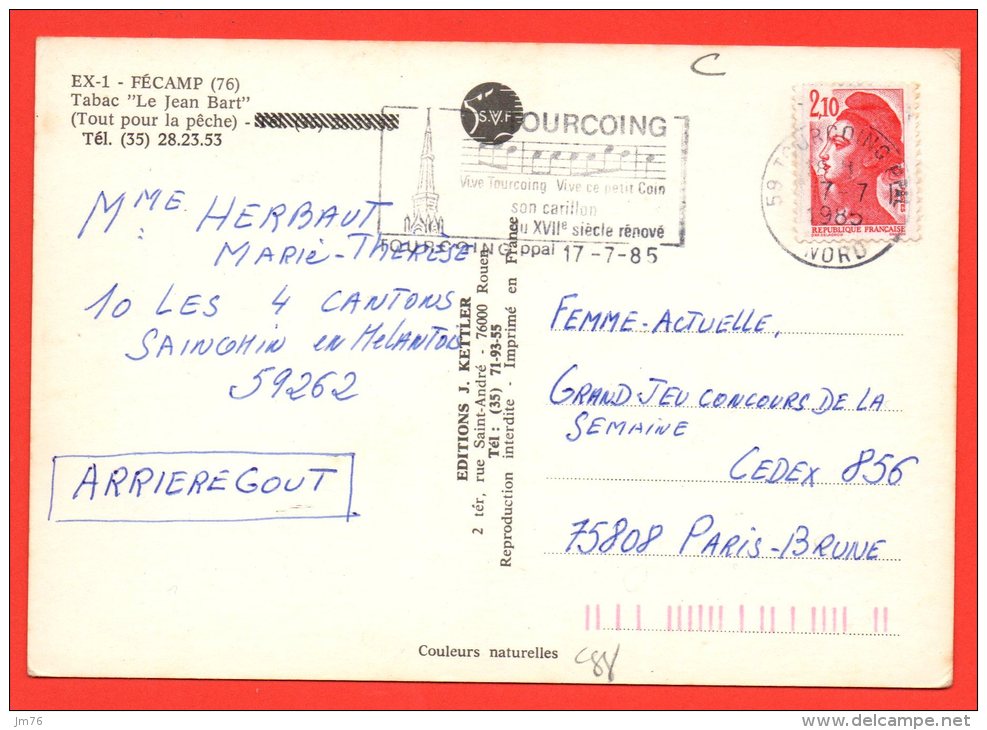 EX-1 - FÉCAMP (76)
Tabac "Le Jean Bart"
(Tout pour la pêche) -
Tél. (35) 28.23.53
C
S.V.F
TOURCOING
Vive Tourcoing Vive ce petit Coin
son carillon
du XVIIe siècle rénové
TOURCOING ppal 17-7-85
2,10
REPUBLIQUE FRANÇAISE
59 TOURCOING PPAL
17-7
1985
NORD
MME HERBAUT
MARIE-THERESE
10 LES 4 CANTONS
SAINGHIN en MELANTOIS
59262
ARRIEREGOUT
EDITIONS J. KETTLER
2 tér, rue Saint-André - 76000 Rouen
Tél : (35) 71-93-55
Reproduction interdite - Imprimé en France
FEMME-ACTUELLE,
GRAND-JEU CONCOURS DE LA
SEMAINE
CEDEX 856
75808 PARIS-BRUNE
Couleurs naturelles
jm76
www.delcampe.net